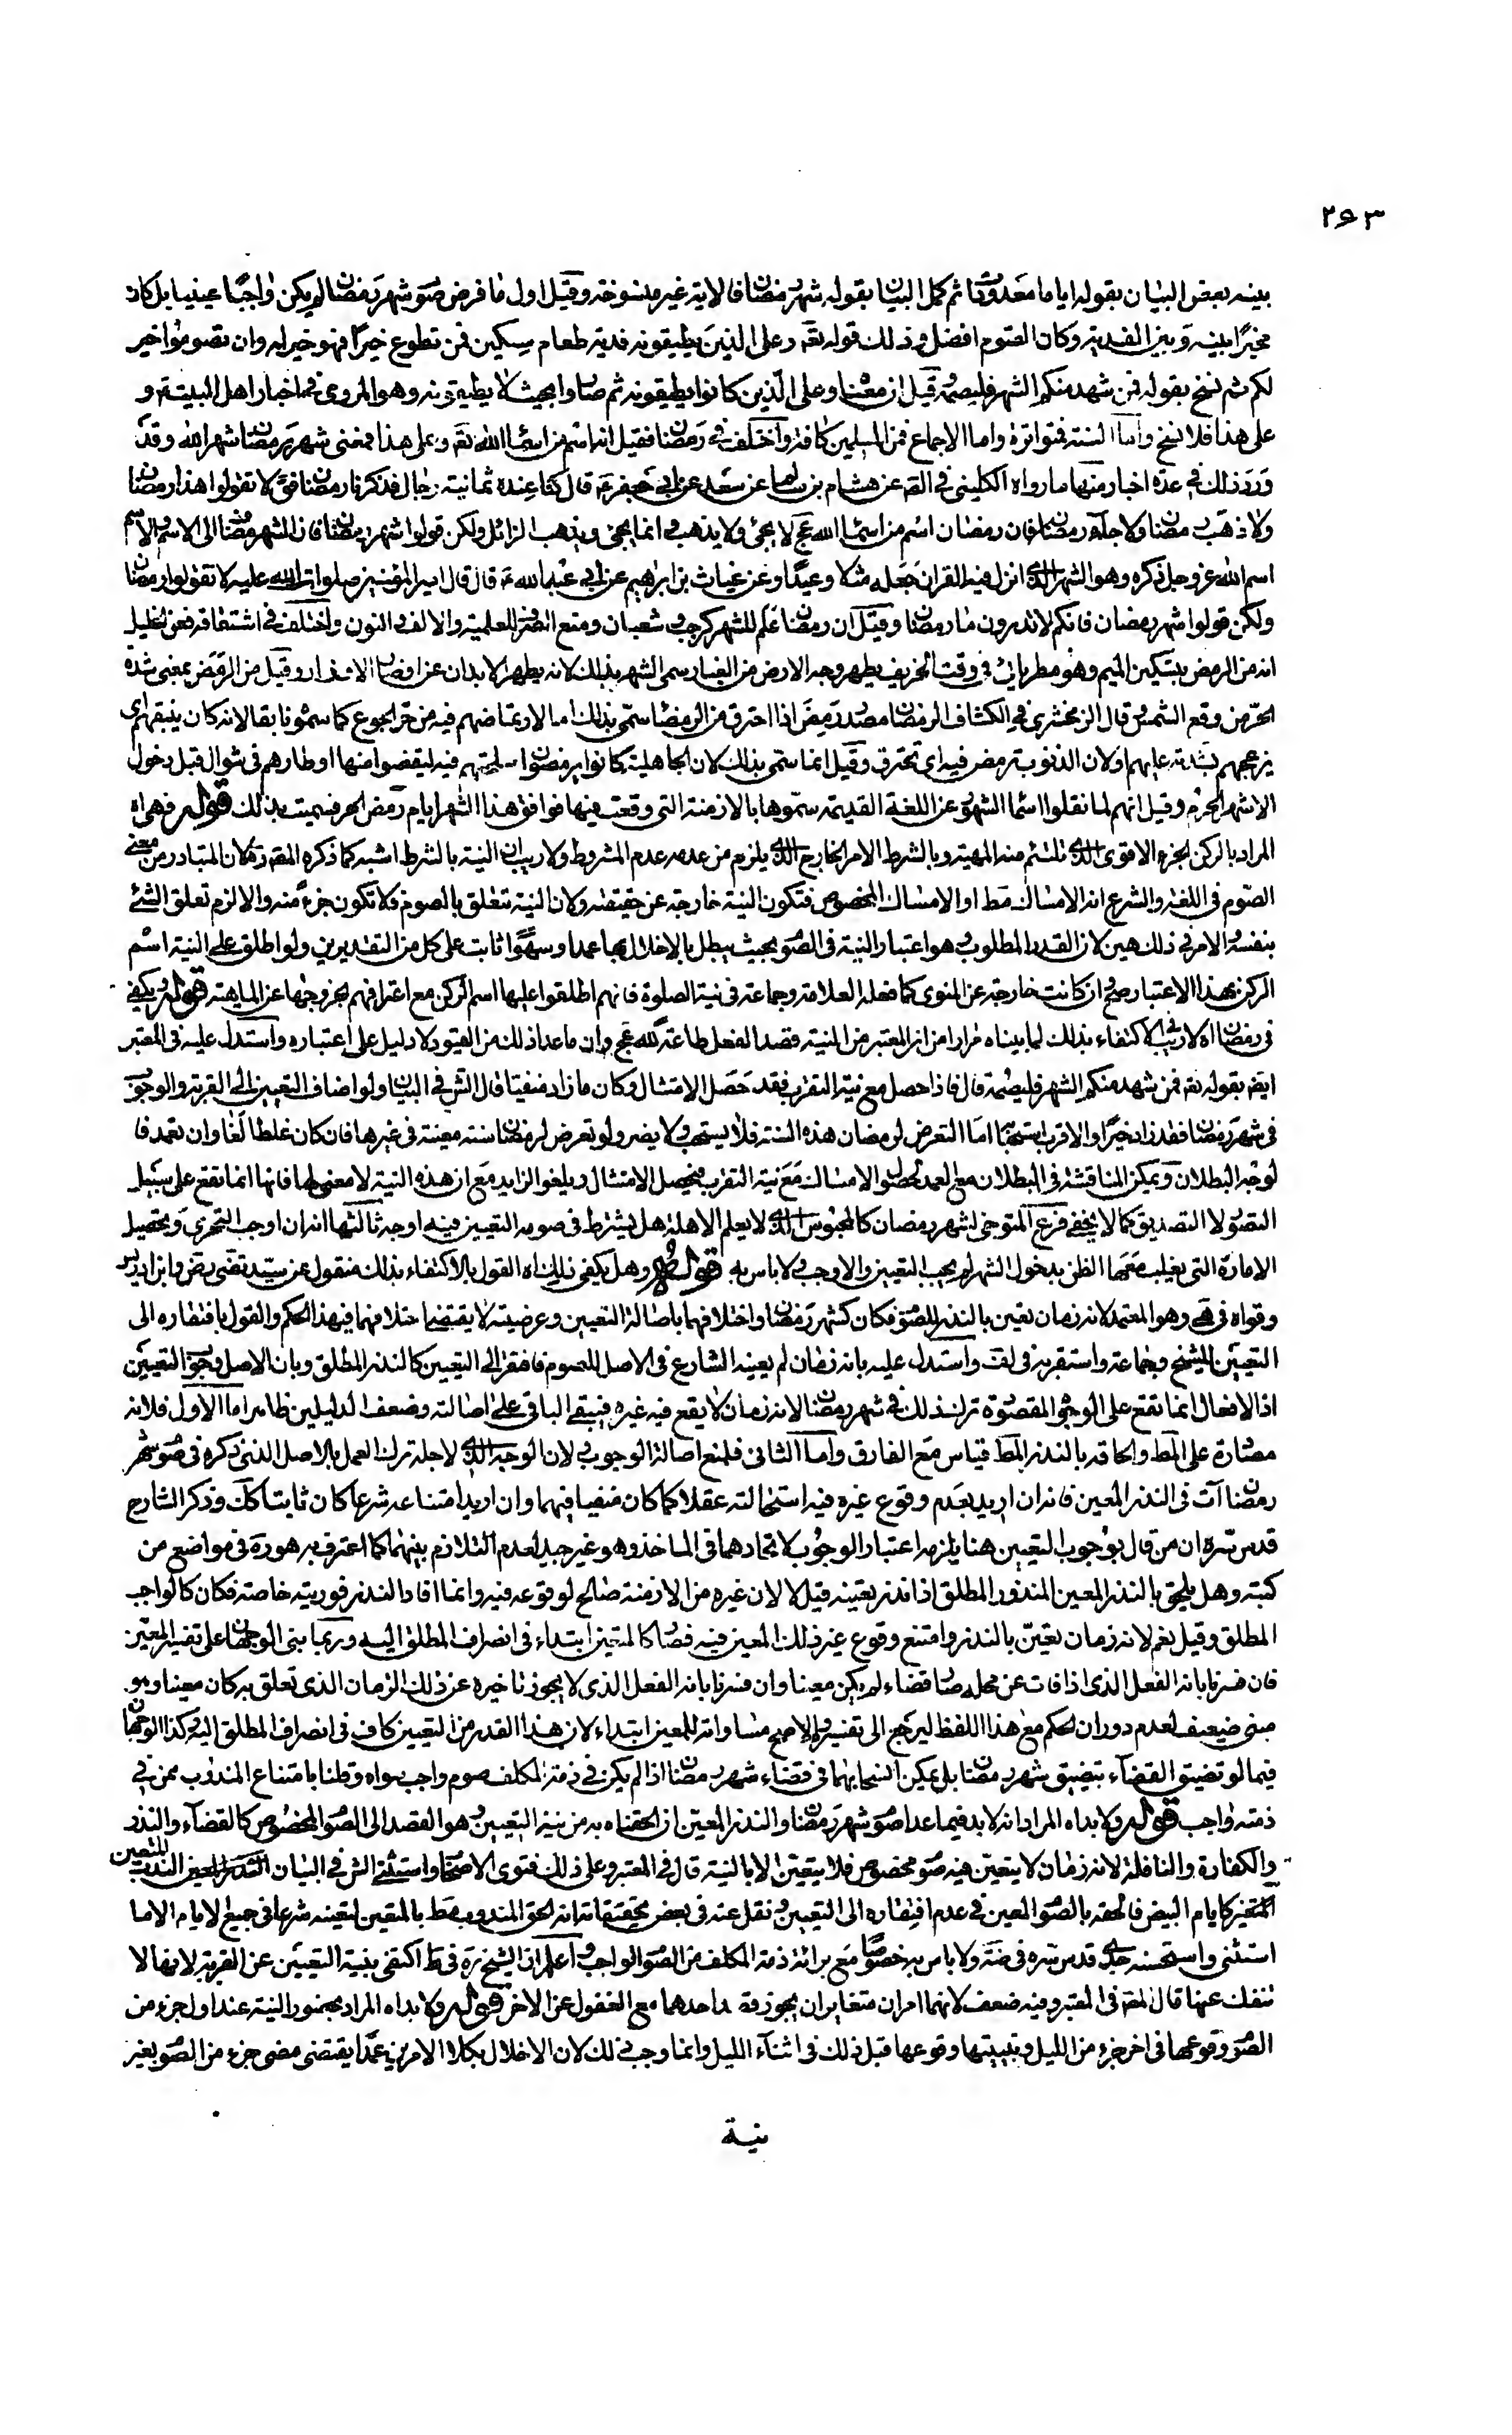 ٢٩٣
بينه بعض البيان بقوله اياما معدودات ثم كمل البيان بقوله شهر رمضان فالاية غير منسوخة وقيل اول ما فرض صوم شهر رمضان لم يكن واجبا عينيا بل كان
مخيرا بينه وبين الفدية وكان الصوم افضل وذلك قوله تعم وعلى الذين يطيقونه فدية طعام مسكين فمن تطوع خيرا فهو خير له وان تصوموا خير
لكم ثم نسخ بقوله فمن شهد منكم الشهر فليصمه وقيل ان معناه وعلى الذين كانوا يطيقونه ثم صاروا بحيث لا يطيقونه وهو المروى في اخبار اهل البيت و
على هذا فلا نسخ واما السنة فمتواترة واما الاجماع فمن المسلمين كافة واختلف في رمضان فقيل انه اسم من اسماء الله تعم وعلى هذا فمعنى شهر رمضان شهر الله وقد
ورد ذلك في عدة اخبار منها ما رواه الكلينى في عن هشام بن سالم عن سعد عن ابى جعفر ع قال كنا عنده ثمانية رجال فذكرنا رمضان فق لا تقولوا هذا رمضان
ولا ذهب رمضان ولا جاء رمضان فان رمضان اسم من اسماء الله عج لا يجئ ولا يذهب وانما يجئ ويذهب الزائل ولكن قولوا شهر رمضان فان الشهر مضاف الى الاسم والاسم
اسم الله عز وجل ذكره وهو الشهر الذى انزل فيه القران جعله مثلا وعيدا وعن غياث بن ابراهيم عن ابى عبد الله ع قال قال امير المؤمنين صلوات الله عليه لا تقولوا رمضان
ولكن قولوا شهر رمضان فانكم لا تدرون ما رمضان وقيل ان رمضان علم للشهر كرجب وشعبان ومنع الصرف للعلمية والالف والنون واختلف في اشتقاقه فعن الخليل
انه من الرمض بتسكين الميم وهو مطر ياتى في وقت الخريف يطهر وجه الارض من الغبار سمى الشهر بذلك لانه يطهر الابدان عن اوضار الاوزار وقيل من الرمض بمعنى شدة
الحر من وقع الشمس قال الزمخشرى في الكشاف الرمضان مصدر رمض اذا احترق من الرمضاء سمى بذلك اما لارتماضهم فيه من حر الجوع كما سموه ناتقا لانه كان ينتقهم اى
يزعجهم بشدته عليهم او لان الذنوب ترمض فيه اى تحترق وقيل انما سمى بذلك لان الجاهلية كانوا يرمضون اسلحتهم فيه ليقضوا منها اوطارهم في شوال قبل دخول
الاشهر الحرم وقيل انهم لما نقلوا اسماء الشهور عن اللغة القديمة سموها بالازمنة التى وقعت فيها فوافق هذا الشهر ايام رمض الحر فسميت بذلك قوله فهى اه
المراد بالركن الجزء الاقوى الذى تلتئم منه المهية وبالشرط الامر الخارج الذى يلزم من عدمه عدم المشروط ولا ريب ان النية بالشرط اشبه كما ذكره المص ره لان المتبادر من معنى
الصوم في اللغة والشرع انه الامساك مط او الامساك المخصوص فتكون النية خارجة عن حقيقته ولان النية تتعلق بالصوم فلا تكون جزءً منه والا لزم تعلق الشئ
بنفسه والامر في ذلك هين لان القدر المطلوب وهو اعتبار النية في الصوم بحيث يبطل بالاخلال بها عمدا وسهوا ثابت على كل من التقديرين ولو اطلق على النية اسم
الركن بهذا الاعتبار صح وان كانت خارجة عن المنوى كما فعله العلامة وجماعة في نية الصلوة فانهم اطلقوا عليها اسم الركن مع اعترافهم بخروجها عن الماهية قوله ويكفى
في رمضان اه لا ريب في الاكتفاء بذلك لما بيناه مرارا من ان المعتبر من النية قصد الفعل طاعة لله عج وان ما عدا ذلك من القيود لا دليل على اعتباره واستدل عليه في المعتبر
ايض بقوله تعم فمن شهد منكم الشهر فليصمه قال فاذا حصل مع نية التقرب فقد حصل الامتثال وكان ما زاد منفيا قال الش في البيان ولو اضاف التعيين الى القربة والوجوب
في شهر رمضان فقد زاد خيرا والاقرب استحبابه اما التعرض لرمضان هذه السنة فلا يستحب ولا يضر ولو تعرض لرمضان سنة معينة في غيرها فان كان غلطا لغا وان تعمد فا
لوجه البطلان ويمكن المناقشة في البطلان مع العمد لحصول الامساك مع نية التقرب فيحصل الامتثال ويلغو الزايد مع ان هذه النية لا معنى لها فانها انما تقع على سبيل
التصور لا التصديق كما لا يخفى فرع المتوخى لشهر رمضان كالمحبوس الذى لا يعلم الاهلة هل يشترط في صومه التعيين فيه اوجه ثالثها انه ان اوجب التحرى وتحصيل
الامارة التى يغلب معها الظن بدخول الشهر لم يجب التعيين والا وجب ولا باس به قوله وهل يكفى ذلك اه القول بالاكتفاء بذلك منقول عن سيد مرتضى رض وابن ادريس
وقواه في هى وهو المعتمد لانه زمان تعين بالنذر للصوم فكان كشهر رمضان واختلافهما باصالة التعيين وعرضيته لا يقتضى اختلافهما في هذا الحكم والقول بافتقاره الى
التعيين للشيخ وجماعة واستقربه في لف واستدل عليه بانه زمان لم يعينه الشارع في الاصل للصوم فافتقر الى التعيين كالنذر المطلق وبان الاصل وجوب التعيين
اذ الافعال انما تقع على الوجوه المقصودة ترك ذلك في شهر رمضان لانه زمان لا يقع فيه غيره فيبقى الباقى على اصالته وضعف الدليلين ظاهر اما الاول فلانه
مصادرة على المط والحاقه بالنذر المط قياس مع الفارق واما الثانى فلمنع اصالة الوجوب ولان الوجه الذى لاجله ترك العمل بالاصل الذى ذكره في صوم شهر
رمضان آت في النذر المعين فانه ان اريد بعدم وقوع غيره فيه استحالته عقلا كما كان منفيا فيهما وان اريد امتناعه شرعا كان ثابتا كك وذكر الشارح
قدس سره ان من قال بوجوب التعيين هنا يلزمه اعتبار الوجوب لاتحادهما في الماخذ وهو غير جيد لعدم التلازم بينهما كما اعترف به هو ره في مواضع من
كتبه وهل يلحق بالنذر المعين المنذور المطلق اذا نذر تعيينه قيل لا لان غيره من الازمنة صالح لوقوعه فيه وانما افاد النذر فوريته خاصة فكان كالواجب
المطلق وقيل نعم لانه زمان تعين بالنذر وامتنع وقوع غير ذلك المعين فيه فصار كالمتعين ابتداء في انصراف المطلق اليه وربما بنى الوجهان على تفسير المعين
فان فسرنا بانه الفعل الذى اذا فات عن محله صار قضاء لم يكن معينا وان فسرنا بانه الفعل الذى لا يجوز تاخيره عن ذلك الزمان الذى تعلق به كان معينا وهو
مبنى ضعيف لعدم دوران الحكم مع هذا اللفظ ليرجع الى تفسيره والاصح مساواته للمعين ابتداء لان هذا القدر من التعيين كاف في انصراف المطلق اليه وكذا الوجهان
فيما لو تضيق القضاء بتضيق شهر رمضان بل يمكن انسحابهما في قضاء شهر رمضان اذا لم يكن في ذمة المكلف صوم واجب سواه وقلنا بامتناع المندوب ممن في
ذمته واجب قوله ولا بد اه المراد انه لا بد فيما عدا صوم شهر رمضان والنذر المعين ان الحقناه به من نية التعيين وهو القصد الى الصوم المخصوص كالقضاء والنذر
والكفارة والنافلة لانه زمان لا يتعين فيه صوم مخصوص فلا يتعين الا بالنية قال في المعتبر وعلى ذلك فتوى الاصحاب واستثنى الش في البيان الندب للتعين
كايام البيض فالحقه بالصوم المعين في عدم افتقاره الى التعيين ونقل عنه في بعض تحقيقاته انه الحق المندوب مط بالمتعين لتعينه شرعا في جميع الايام الا ما
استثنى واستحسنه جدى قدس سره في ضه ولا باس به خصوصا مع برائة ذمة المكلف من الصوم الواجب واعلم ان الشيخ ره في ط اكتفى بنية التعيين عن القربة لانها لا
تنفك عنها قال المص في المعتبر وفيه ضعف لانهما امران متغايران يجوز قصد احدهما مع الغفول عن الاخر قوله ولا بد اه المراد بحضور النية عند اول جزء من
الصوم وقوعها في اخر جزء من الليل وتبييتها وقوعها قبل ذلك في اثناء الليل وانما وجب ذلك لان الاخلال بكلا الامرين عمدا يقتضى مضى جزء من الصوم بغير
نية